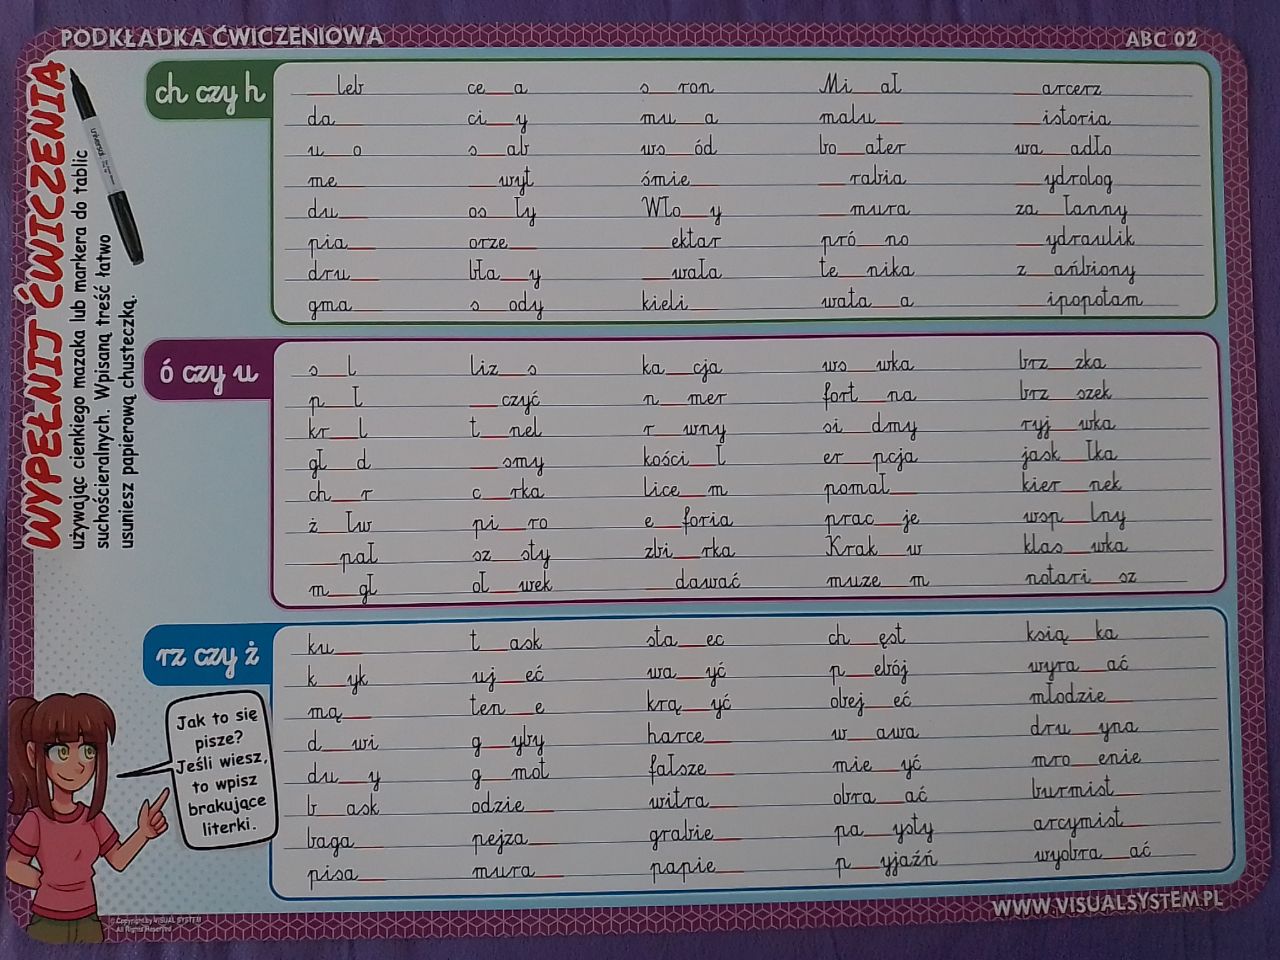 PODKŁADKA ĆWICZENIOWA
ABC 02
WYPEŁNIJ ĆWICZENIA
używając cienkiego mazaka lub markera do tablic
suchościeralnych. Wpisaną treść łatwo
usuniesz papierową chusteczką.
ch czy h
__leb ce__a s__ron Mi__ał __arcerz
da__ ci__y mu__a malu__ __istoria
u__o s__ab ws__ód bo__ater wa__adło
me__ __wyt śmie__ __rabia __ydrolog
du__ os__ły Wło__y __mura za__łanny
pia__ orze__ __ektar pró__no __ydraulik
dru__ bła__y __wała te__nika z__ańbiony
gma__ s__ody kieli__ wata__a __ipopotam
ó czy u
s__l liz__s ka__cja ws__wka brz__zka
p__ł __czyć n__mer fort__na brz__szek
kr__l t__nel r__wny si__dmy ryj__wka
gł__d __smy kości__ł er__pcja jask__łka
ch__r c__rka lice__m pomał__ kier__nek
ż__łw pi__ro e__foria prac__je wsp__lny
__pał sz__sty zbi__rka Krak__w klas__wka
m__gł oł__wek __dawać muze__m notari__sz
rz czy ż
ku__ t__ask sta__ec ch__ęst ksią__ka
k__yk uj__eć wa__yć p__ebój wyra__ać
mą__ ten__e krą__yć obej__eć młodzie__
d__wi g__yby harce__ w__awa dru__yna
du__y g__mot fałsze__ mie__yć mro__enie
b__ask odzie__ witra__ obra__ać burmist__
baga__ pejza__ grabie__ pa__ysty arcymist__
pisa__ mura__ papie__ p__yjaźń wyobra__ać
Jak to się
pisze?
Jeśli wiesz,
to wpisz
brakujące
literki.
© Copyright by VISUAL SYSTEM
All Rights Reserved
WWW.VISUALSYSTEM.PL